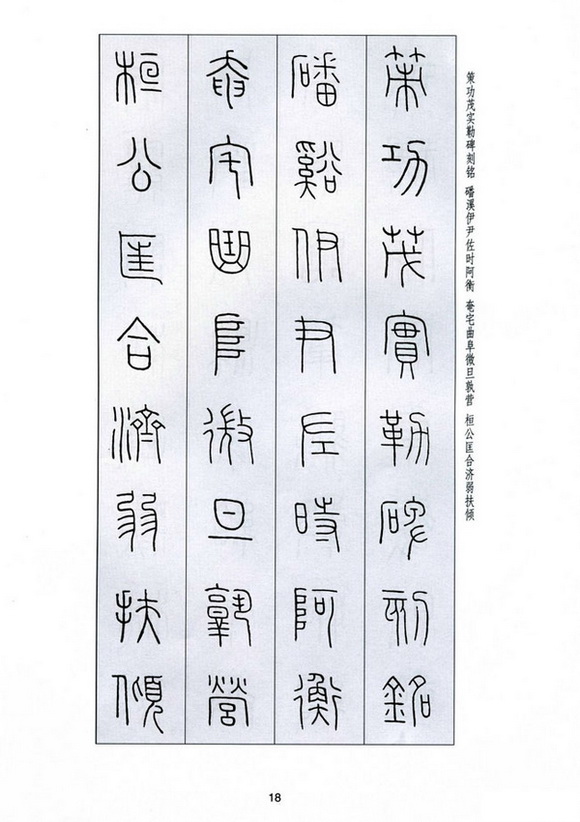 策功茂实勒碑刻铭 磻溪伊尹佐时阿衡 奄宅曲阜微旦孰营 桓公匡合济弱扶倾
策功茂實勒碑刻銘
磻谿伊尹左時阿衡
奄宅曲阜微旦孰營
桓公匡合濟弱扶傾
18